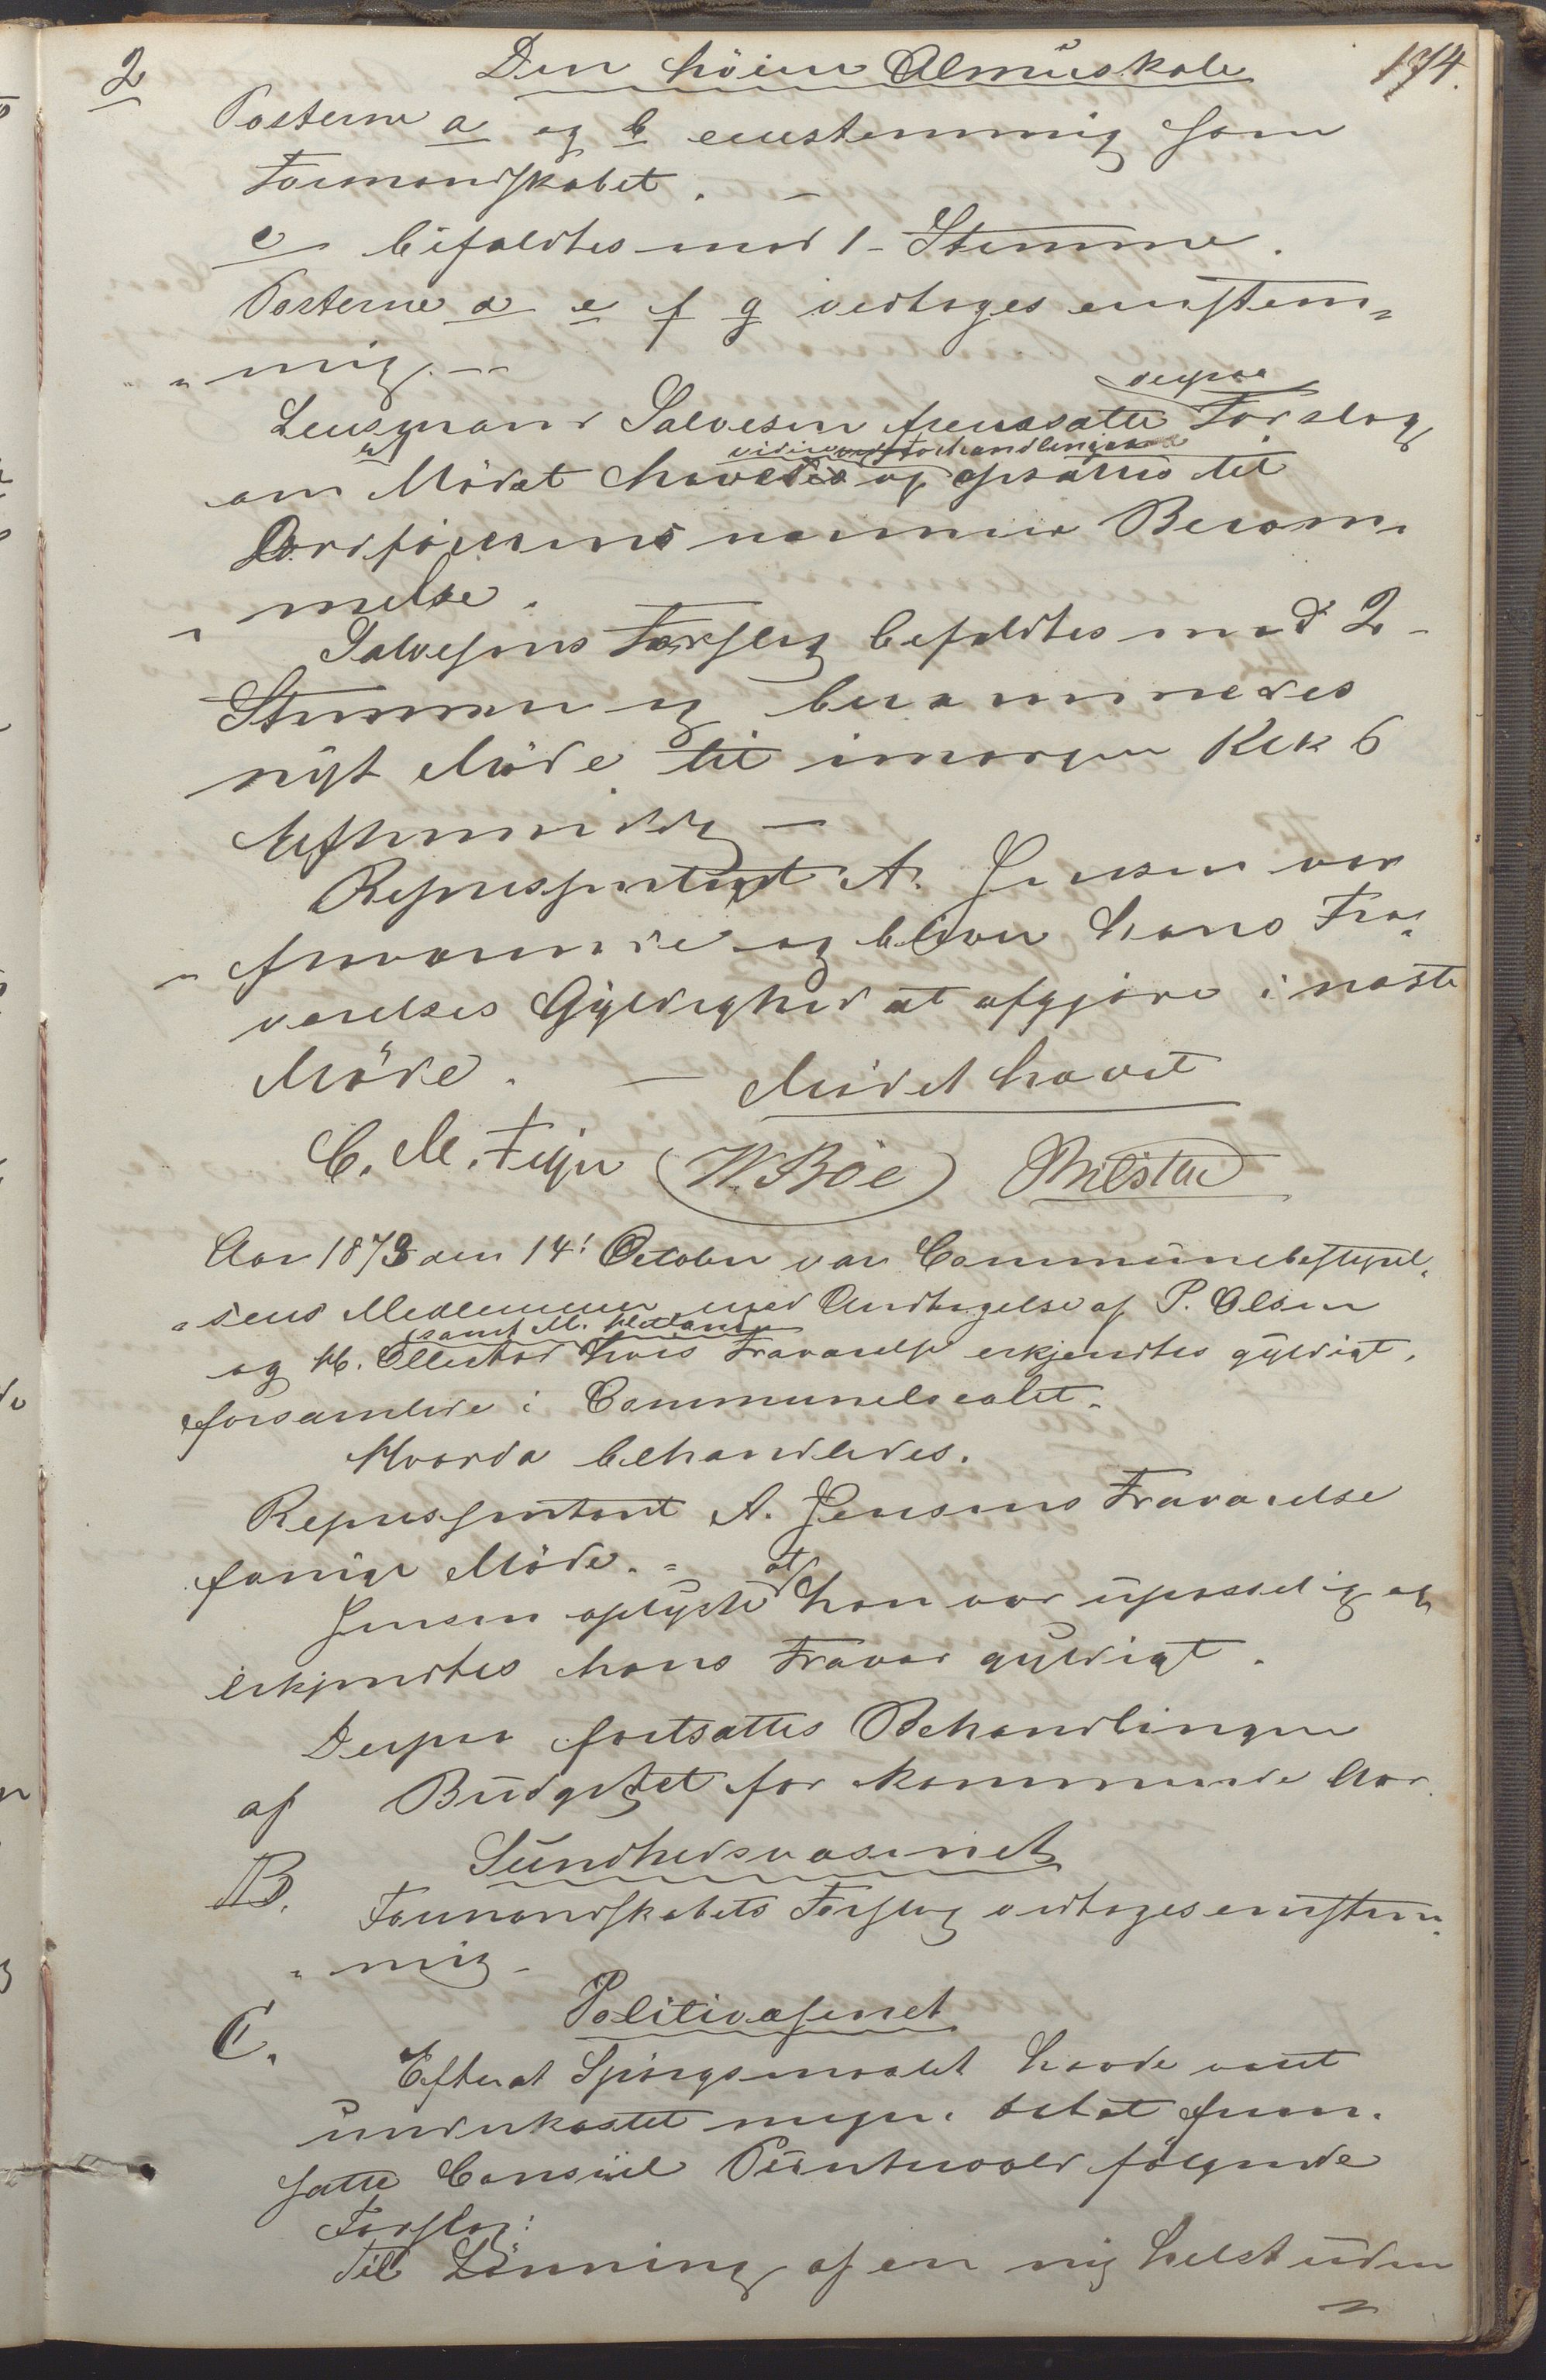 2 Den höiere Almuskole 174.
Posterne a og b eenstemmig som
Formandskabet. —
c bifaldtes mod 1 Stemme.
Posterne d e f g vedtoges eenstem-
mig. —
derpaa
Lensmand Salvesen fremsatte Forslag
at videre Forhandlingerne
om Mödet hævedes og opsattes til
Ordförerens nærmere Beram-
melse.
Salvesens Forslag bifaldtes mod 2
Stemmer og berammedes
nyt Möde til imorgen Klk 6
Eftermiddag —
Repræsentant A. Jensen var
fraværende og bliver hans Fra-
værelses Gyldighed at afgjöre i næste
Möde. — Mödet hævet
C. M. Feyer W. Böe Milstad
Aar 1873 den 14' October var Communebestyrel-
sens Medlemmer med Undtagelse af P. Olsen
samt M. Hetland
og H. Ollestad hvis Fraværelse erkjendtes gyldigt,
forsamlede i Communelocalet.
Hvorda behandledes.
Repræsentant A. Jensens Fraværelse
forrige Möde. -
Jensen oplyste at han var upasselig og
erkjendtes hans Fravær gyldigt.
Derpaa fortsattes Behandlingen
af Budgettet for kommende Aar.
B. Sundhedsvæsenet
Formandskabets Forslag vedtoges eenstem-
mig —
C. Politivæsenet
Efterat Spörgsmaalet havde været
underkastet megen debat frem-
satte Consul Puntervold fölgende
Forslag:
Til Lönning af en mig helst uden